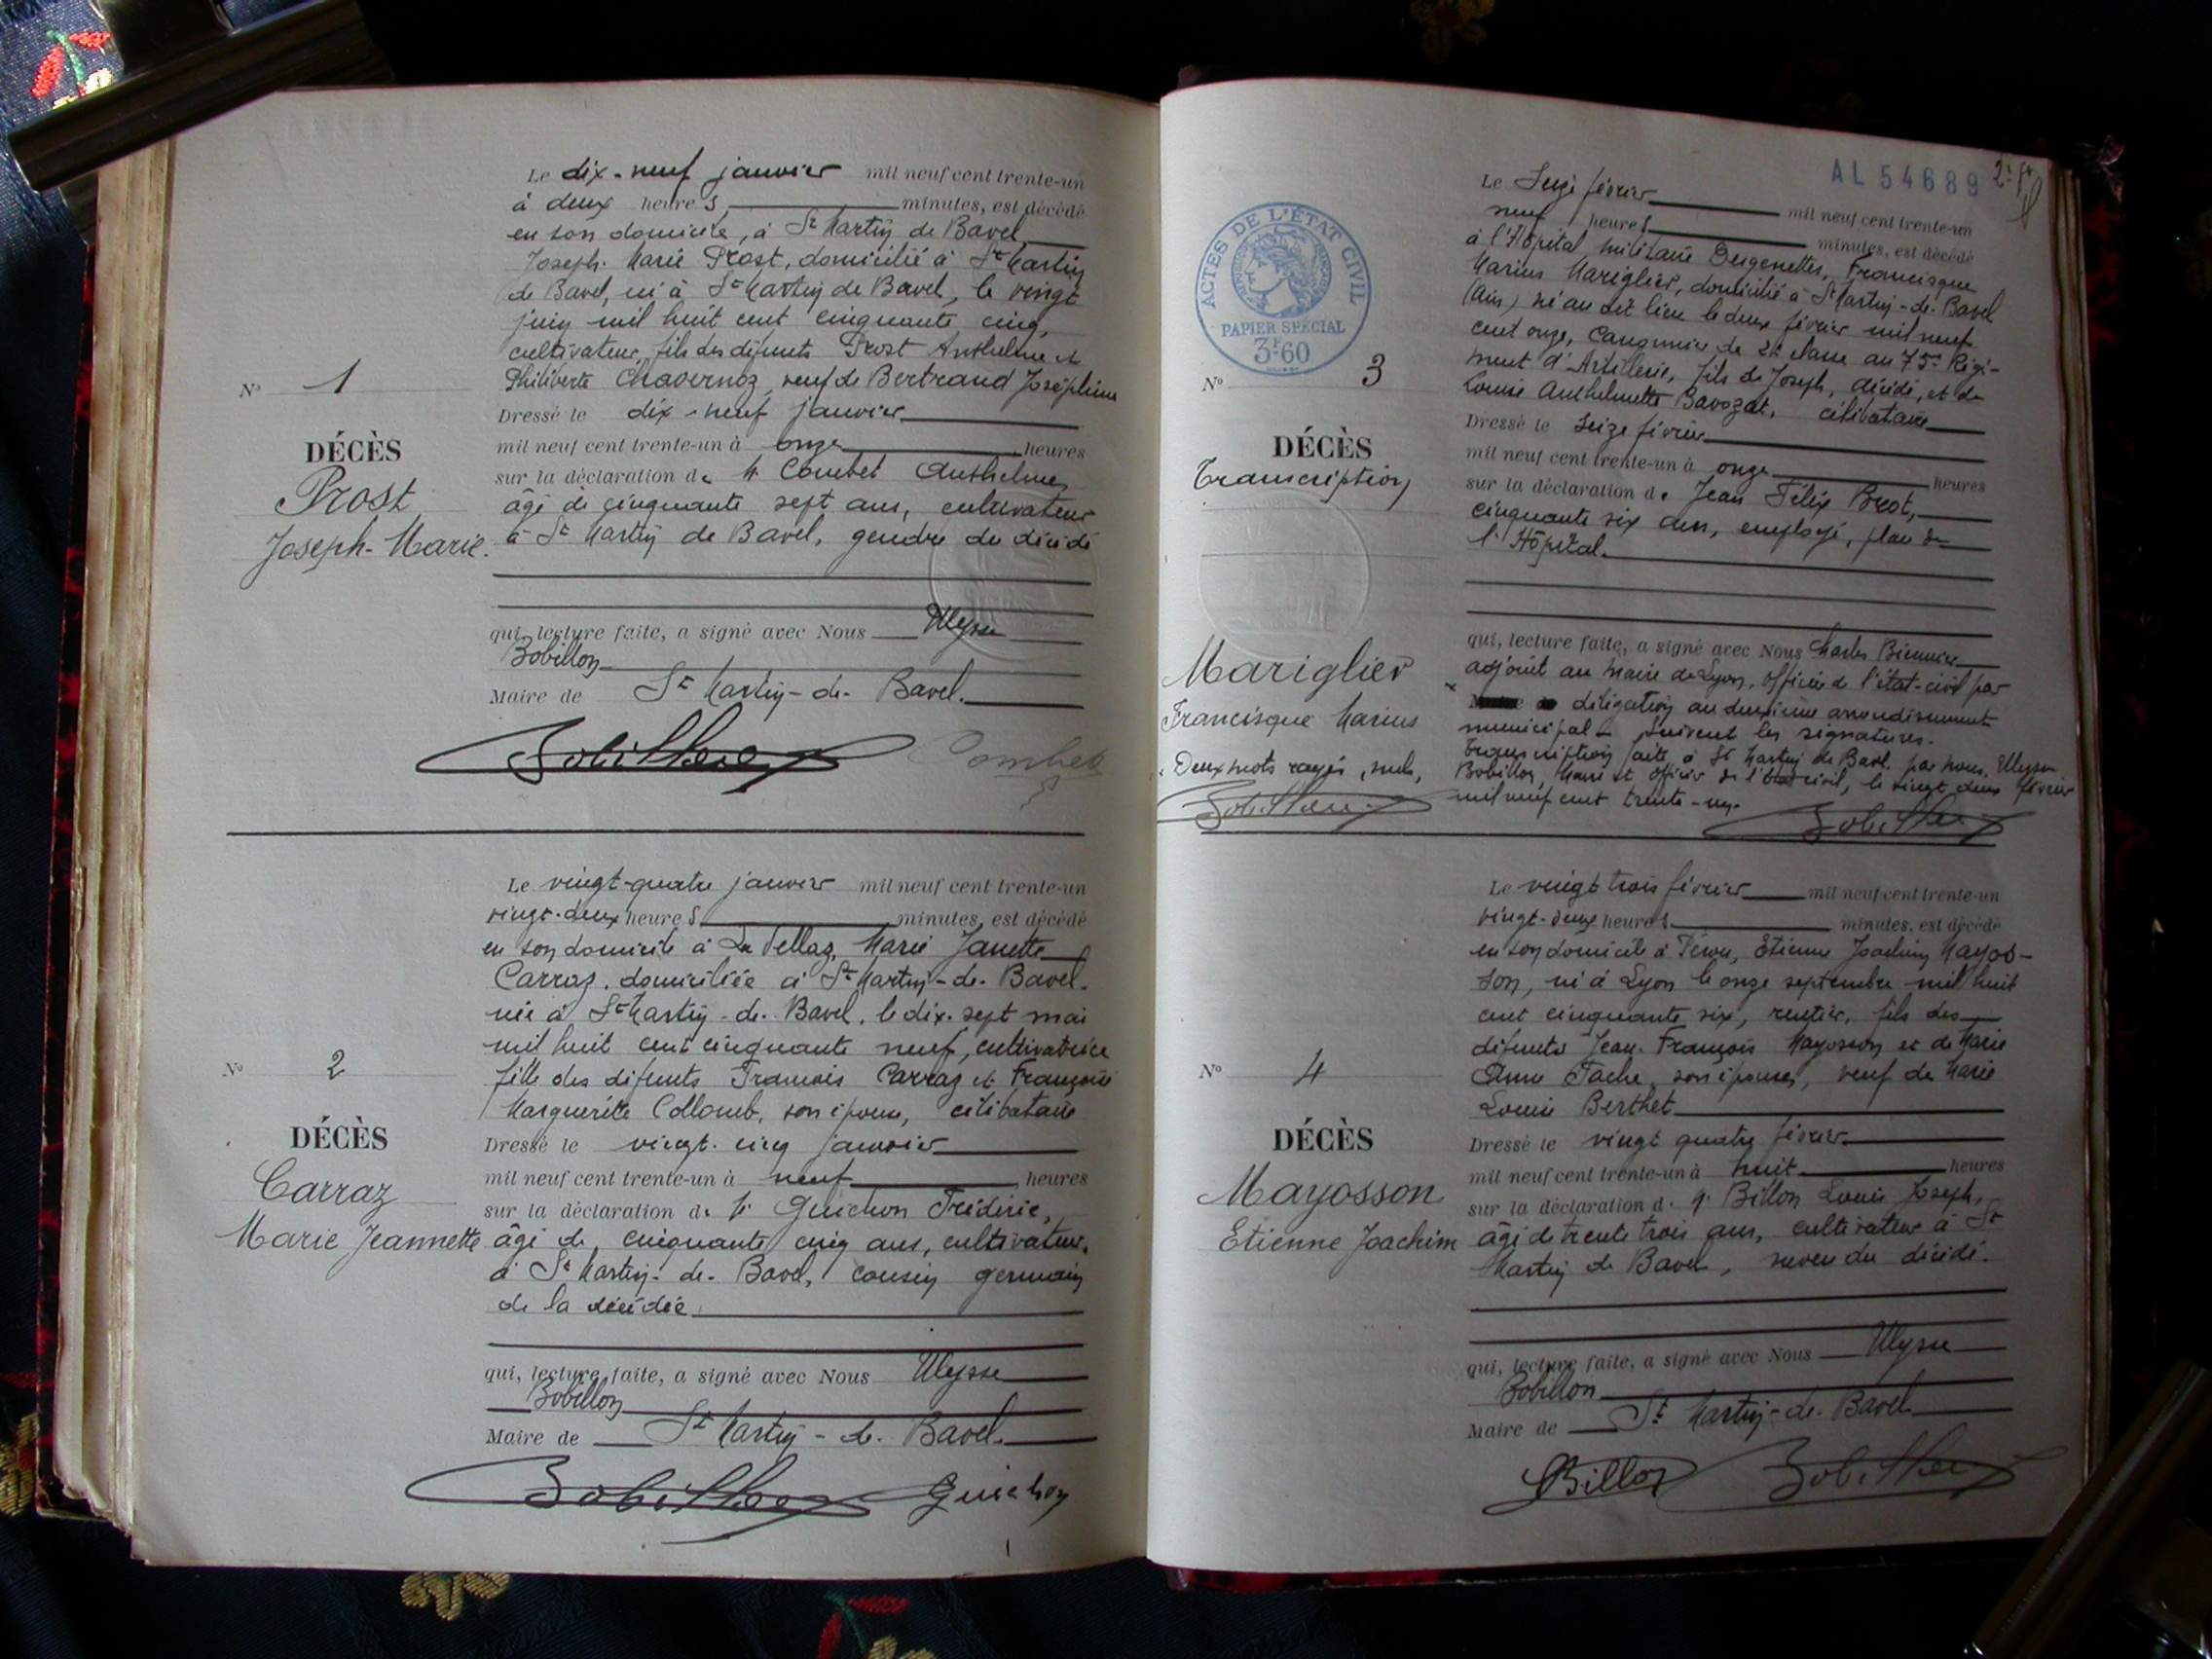 Le dix-neuf janvier mil neuf cent trente-un
à deux heures, minutes, est décédé
en son domicile, à St Martin de Bavel
Joseph-Marie Prost, domicilié à St Martin
de Bavel, né à St Martin de Bavel, le vingt
juin mil huit cent cinquante cinq,
cultivateur, fils des défunts Prost Anthelme et
Philiberte Chavernoz, veuf de Bertrand Joséphine
N° 1
Dressé le dix-neuf janvier
mil neuf cent trente-un à onze heures
DÉCÈS
sur la déclaration de M Combet Anthelme,
Prost
âgé de cinquante sept ans, cultivateur
Joseph-Marie.
à St Martin de Bavel, gendre du décédé
qui, lecture faite, a signé avec Nous Ulysse
Bobillon
Maire de St Martin-de-Bavel.
Bobillon Combet
Le vingt-quatre janvier mil neuf cent trente-un
vingt-deux heures minutes, est décédé
en son domicile à La Vellaz, Marie Janette
Carraz, domiciliée à St Martin-de-Bavel.
née à St Martin-de-Bavel, le dix-sept mai
mil huit cent cinquante neuf, cultivatrice
N° 2
fille des défunts François Carraz et Françoise
Marguerite Collomb, son épouse, célibataire
DÉCÈS
Dressé le vingt-cinq janvier
mil neuf cent trente-un à neuf heures
Carraz
sur la déclaration de M Guichon Frédéric,
Marie Jeannette
âgé de cinquante cinq ans, cultivateur,
à St Martin-de-Bavel, cousin germain
de la décédée
qui, lecture faite, a signé avec Nous Ulysse
Bobillon
Maire de St Martin-de-Bavel.
Bobillon Guichon
AL 54689
ACTES DE L'ÉTAT CIVIL
PAPIER SPÉCIAL
3F60
Le Seize février mil neuf cent trente-un
neuf heures minutes, est décédé
à l'Hôpital militaire Desgenettes, Francisque
Marius Mariglier, domicilié à St Martin-de-Bavel
(Ain) né au dit lieu le deux février mil neuf
cent onze, Canonnier de 2e classe au 75e Régi-
N° 3
ment d'Artillerie, fils de Joseph, décédé, et de
Louise Anthelmette Bavozat, célibataire
DÉCÈS
Dressé le seize février
Transcription
mil neuf cent trente-un à onze heures
sur la déclaration de Jean Félix Brot,
cinquante six ans, employé, place de
l'Hôpital.
qui, lecture faite, a signé avec Nous Charles
Mariglier
adjoint au Maire de Lyon, officier de l'état-civil par
Francisque Marius
délégation au deuxième arrondissement
municipal. Suivent les signatures.
Deux mots rayés, nuls,
Transcription faite à St Martin de Bavel par nous, Ulysse
Bobillon, Maire et officier de l'état civil, le vingt deux février
mil neuf cent trente-un.
Bobillon Bobillon
Le vingt trois février mil neuf cent trente-un
vingt-deux heures minutes, est décédé
en son domicile à Etienne Joachim Mayos-
son, né à Lyon le onze septembre mil huit
cent cinquante six, rentier, fils des
défunts Jean-François Mayosson et de Marie
N° 4
Anne Tache, son épouse, veuf de Marie
Louise Berthet
DÉCÈS
Dressé le vingt quatre février
mil neuf cent trente-un à huit heures
Mayosson
sur la déclaration de M. Billon Louis Joseph,
Etienne Joachim
âgé de trente trois ans, cultivateur à St
Martin de Bavel, neveu du décédé.
qui, lecture faite, a signé avec Nous Ulysse
Bobillon
Maire de St Martin-de-Bavel
Billon Bobillon